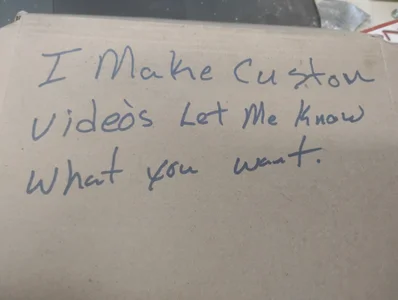 I Make Custon
videos Let Me Know
What you want.